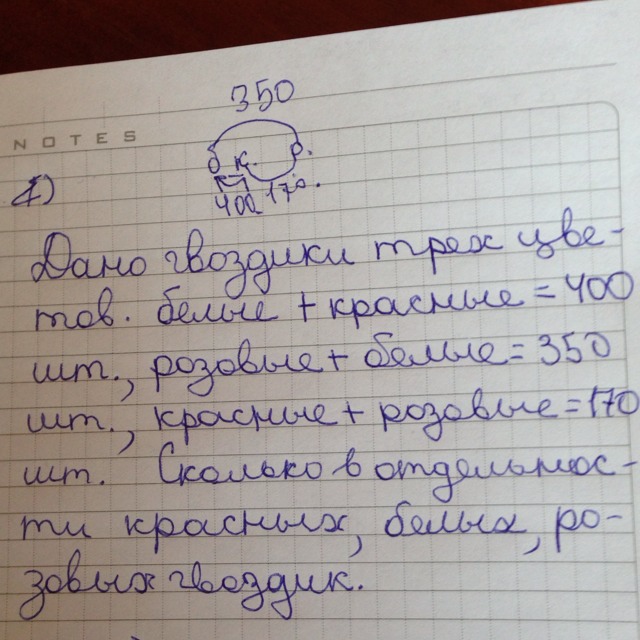 350
NOTES
б к. р.
1)
400 170.
Дано гвоздики трех цве-
тов. белые + красные = 400
шт., розовые + белые = 350
шт., красные + розовые = 170
шт. Сколько в отдельнос-
ти красных, белых, ро-
зовых гвоздик.